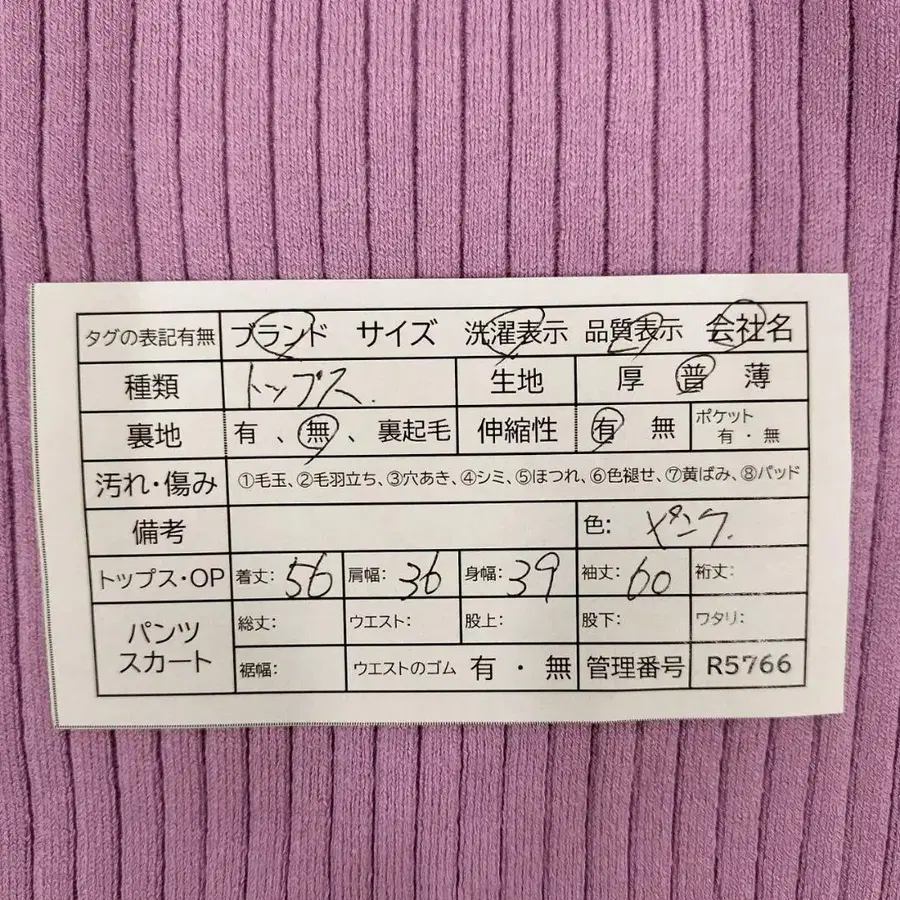 タグの表記有無 ブランド サイズ 洗濯表示 品質表示 会社名
種類 トップス. 生地 厚 普 薄
裏地 有 、無、裏起毛 伸縮性 有 無 ポケット 有・無
汚れ・傷み ①毛玉、②毛羽立ち、③穴あき、④シミ、⑤ほつれ、⑥色褪せ、⑦黄ばみ、⑧パッド
備考 色: ピンク.
トップス・OP 着丈: 56 肩幅: 36 身幅: 39 袖丈: 60 裄丈:
パンツ スカート 総丈: ウエスト: 股上: 股下: ワタリ:
裾幅: ウエストのゴム 有・無 管理番号 R5766